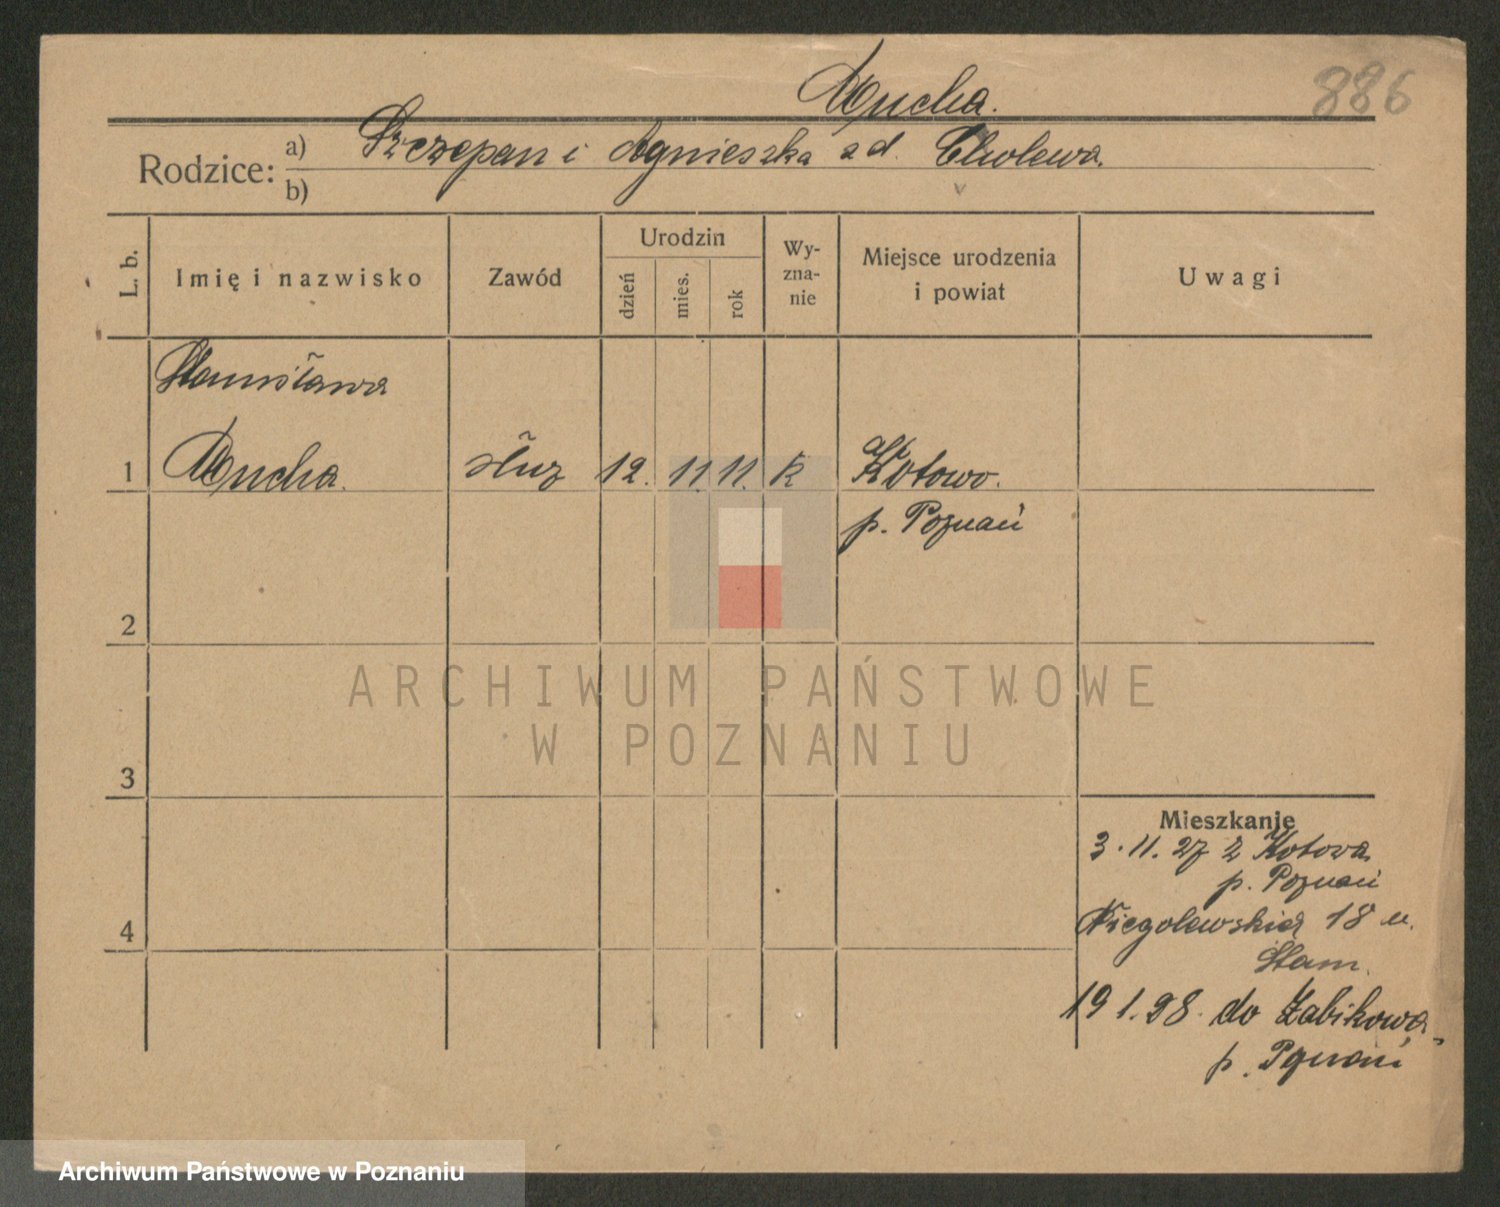 Mucha.
886
Rodzice: a) Szczepan i Agnieszka zd. Cholewa.
b)
L. b.
Imię i nazwisko
Zawód
Urodzin
dzień
mies.
rok
Wy-
zna-
nie
Miejsce urodzenia
i powiat
Uwagi
Stanisława
1 Mucha. służ 12. 11. 11. k Kotowo.
p. Poznań
2
ARCHIWUM PAŃSTWOWE
W POZNANIU
3
Mieszkanie
3. 11. 27 z Kotowa
p. Poznań
4 Niegolewskich 18 u.
Stam.
19 1. 28. do Żabikowa
p. Poznań
Archiwum Państwowe w Poznaniu